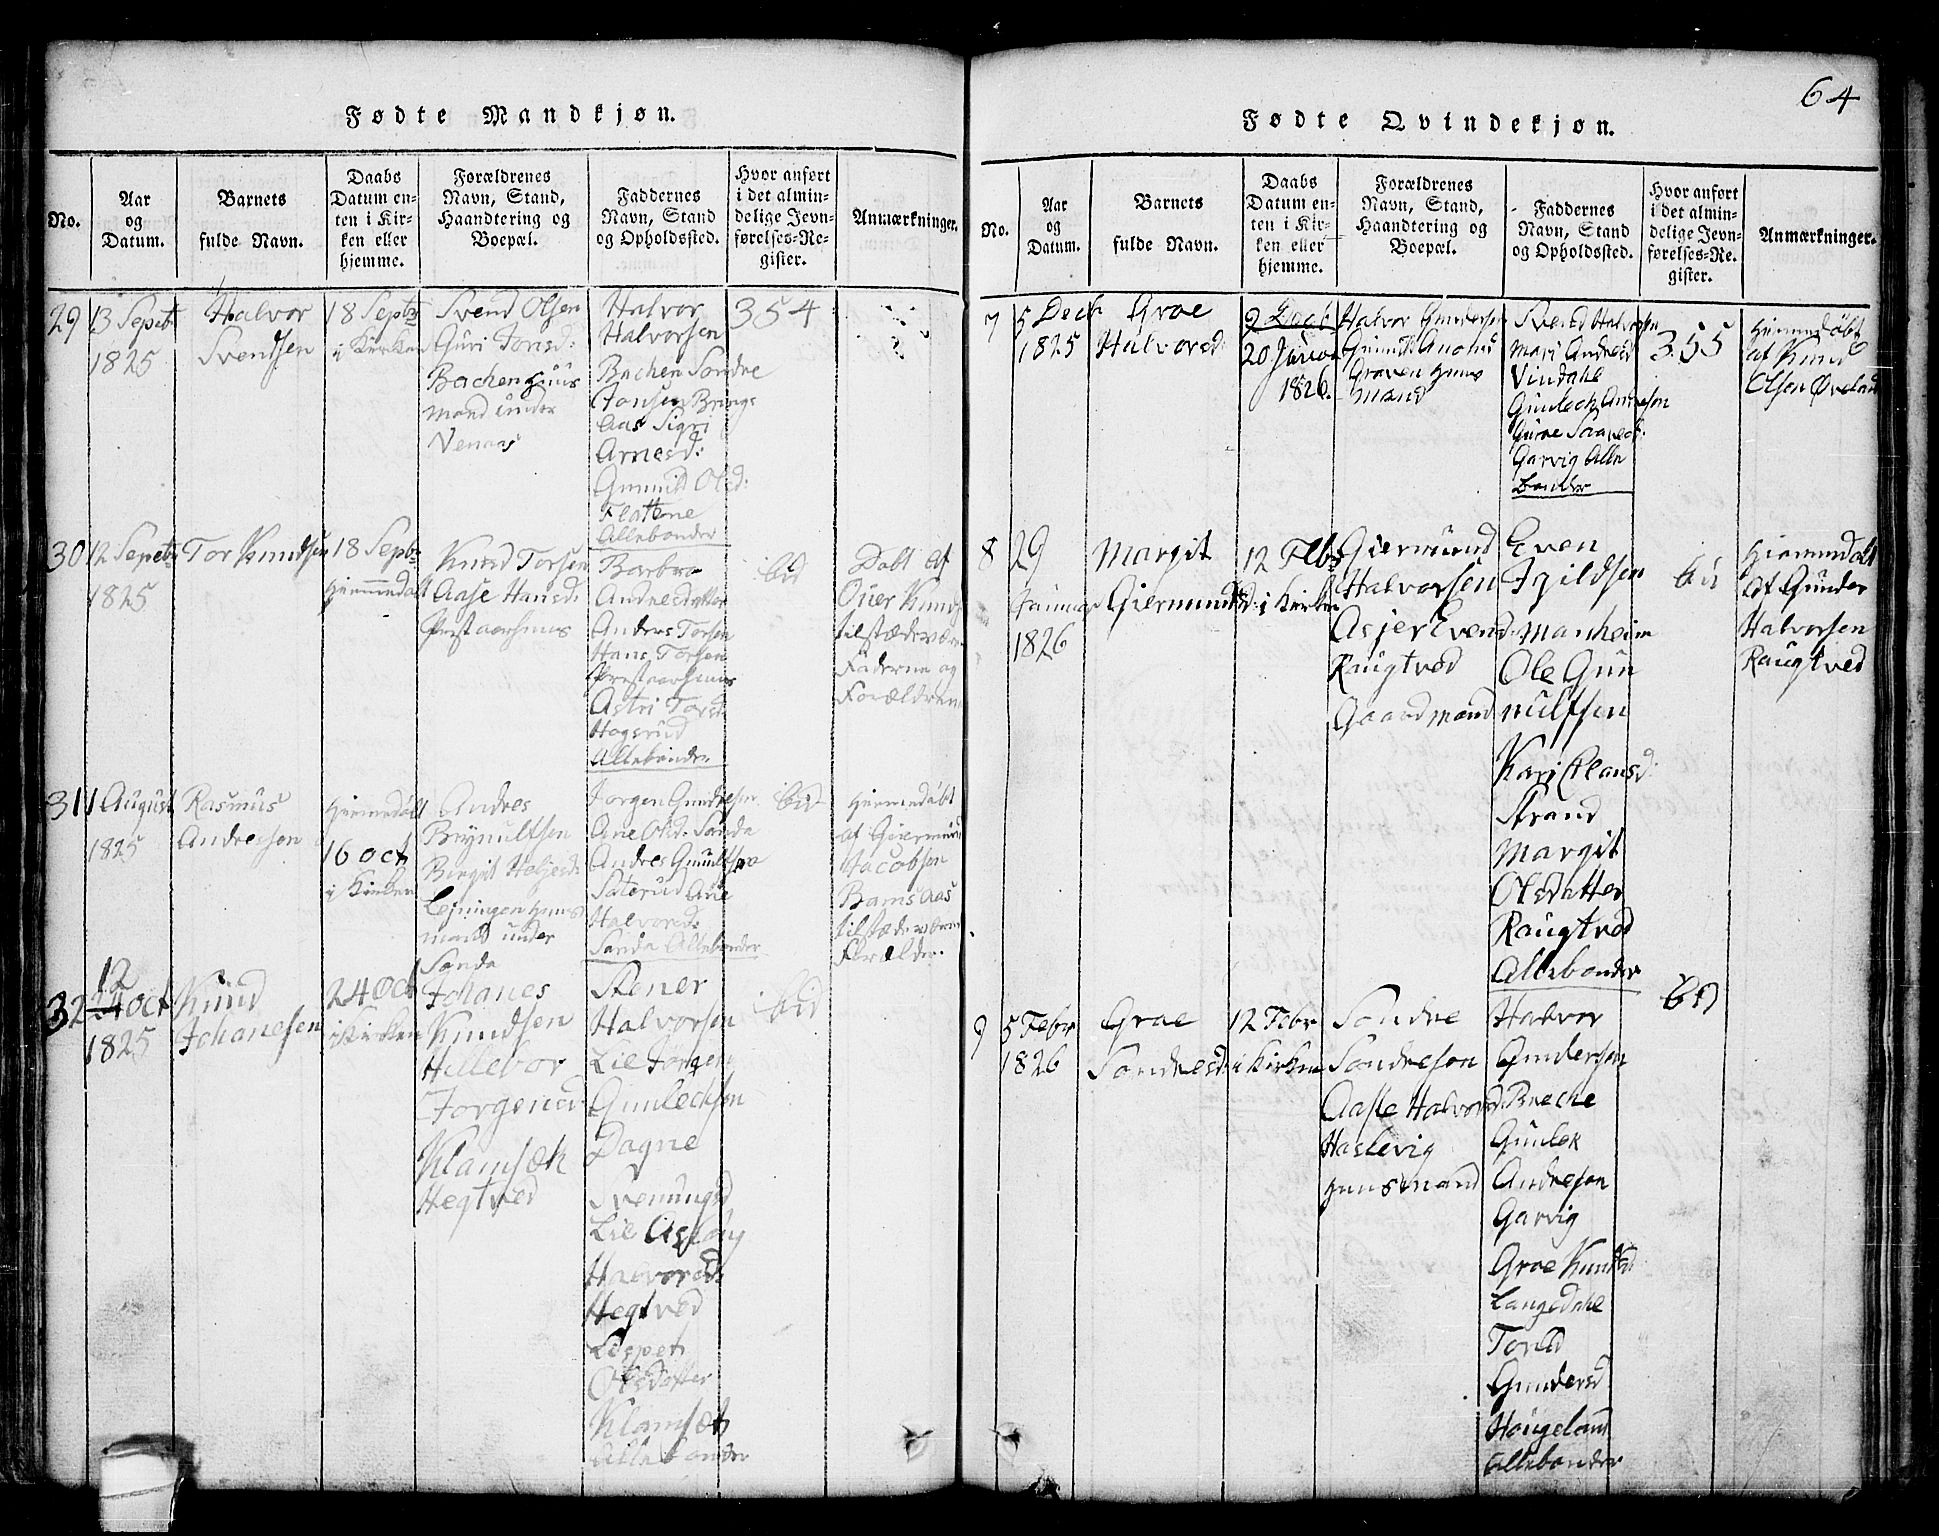 64
Fødte Mandkjøn.
No.
Aar
og
Datum.
Barnets
fulde Navn.
Daabs
Datum en-
ten i Kir-
ken eller
hjemme.
Forældrenes
Navn, Stand,
Haandtering og
Boepæl.
Faddernes
Navn, Stand
og Opholdssted.
Hvor anført
i det almin-
delige Jevn-
førelses-Re-
gister.
Anmærkninger.
29
13 Septbr
1825
Halvor
Svendsen
18 Septbr
i Kirken
Svend Olsen
Guri Jonsd:
Bachen Huus
mand under
Venaas
Halvor
Halvorsen
Bachen Sondre
Jonsen Brings
aas Sigri
Arnesd:
Gunnild Olsd:
Flattene
Allebønder
354
30
12 Septbr
1825
Tor Knudsen
18 Septbr
Hiemmedøbt
Knud Torsen
Aase Hansd:
Prestaarhuus
Barbro
Andresdatter
Anders Torsen
Hans Torsen
Prestaarhuus
Astri Torsd:
Hogsrud
Allebønder
ibid
Døbt af
Knud
tilstædevære
Faderne og
Forældrene
31
11 August
1825
Rasmus
Andresen
Hiemmedøbt
16 Oct
i Kirken
Andres
Brynultsen
Birgit Heljesd:
Lejningen Huus
mand under
Sanda
Jørgen Gundresen
Ane Olsd. Sanda
Andres Gunultsen
Saterud Ane
Halvorsd:
Sanda Allebønder
ibid
Hiemmedøbt
af Giermund
Jacobsen
Bamsaas
tilstædeværen
Forældre.
32
12
24 Oct
1825
Knud
Johanesen
24 Oct
i Kirken
Johanes
Knudsen
Hellebor
Jorgensd
Klamsæk
Hegtved
Stener
Halvorsen
Lie Jørgen
Gunlecksen
Dagne
Svenungsd
Lie Aslaug
Halvorsd:
Hegtved
Lispet
Olsdatter
Klamsæk
Allebønder
ibid
Fødte Qvindekjøn.
No.
Aar
og
Datum.
Barnets
fulde Navn.
Daabs
Datum en-
ten i Kir-
ken eller
hjemme.
Forældrenes
Navn, Stand,
Haandtering og
Boepæl.
Faddernes
Navn, Stand
og Opholdssted.
Hvor anført
i det almin-
delige Jevn-
førelses-Re-
gister.
Anmærkninger.
7
5 Decbr
1825
Groe
Halvorsd:
9 Decbr
20 Januar
1826.
Halvor Gundersen
Graven Huus
mand
Svend Halvorsen
Mari Andresd
Vindahl
Gunleck Andresen
Garvig Alle
Bønder
355
Hiemmedøbt
af Knud
Olsen Øveland
8
29
Januar
1826
Margit
Giermundsd:
12 Febr
i Kirken
Giermund
Halvorsen
Asjer Evensd
Raugtved
Gaardmand
Even
Manheim
Ole Gun
nulfsen
Kari Clausd:
Strand
Margit
Olsdatter
Raugtved
Allebønder
ibid
Hiemmedøbt
af Gunder
Halvorsen
Raugtved
9
5 Febr
1826
Groe
Sondresd:
12 Febr
i Kirken
Sondre
Sondresøn
Aasle Halvorsd:
Haslevig
Huusmand
Halvor
Gundersen
Breche
Gunlek
Andresøn
Garvig
Groe Knudsd:
Langedahl
Torild
Gundersd
Haugeland
Allebønder
ibid